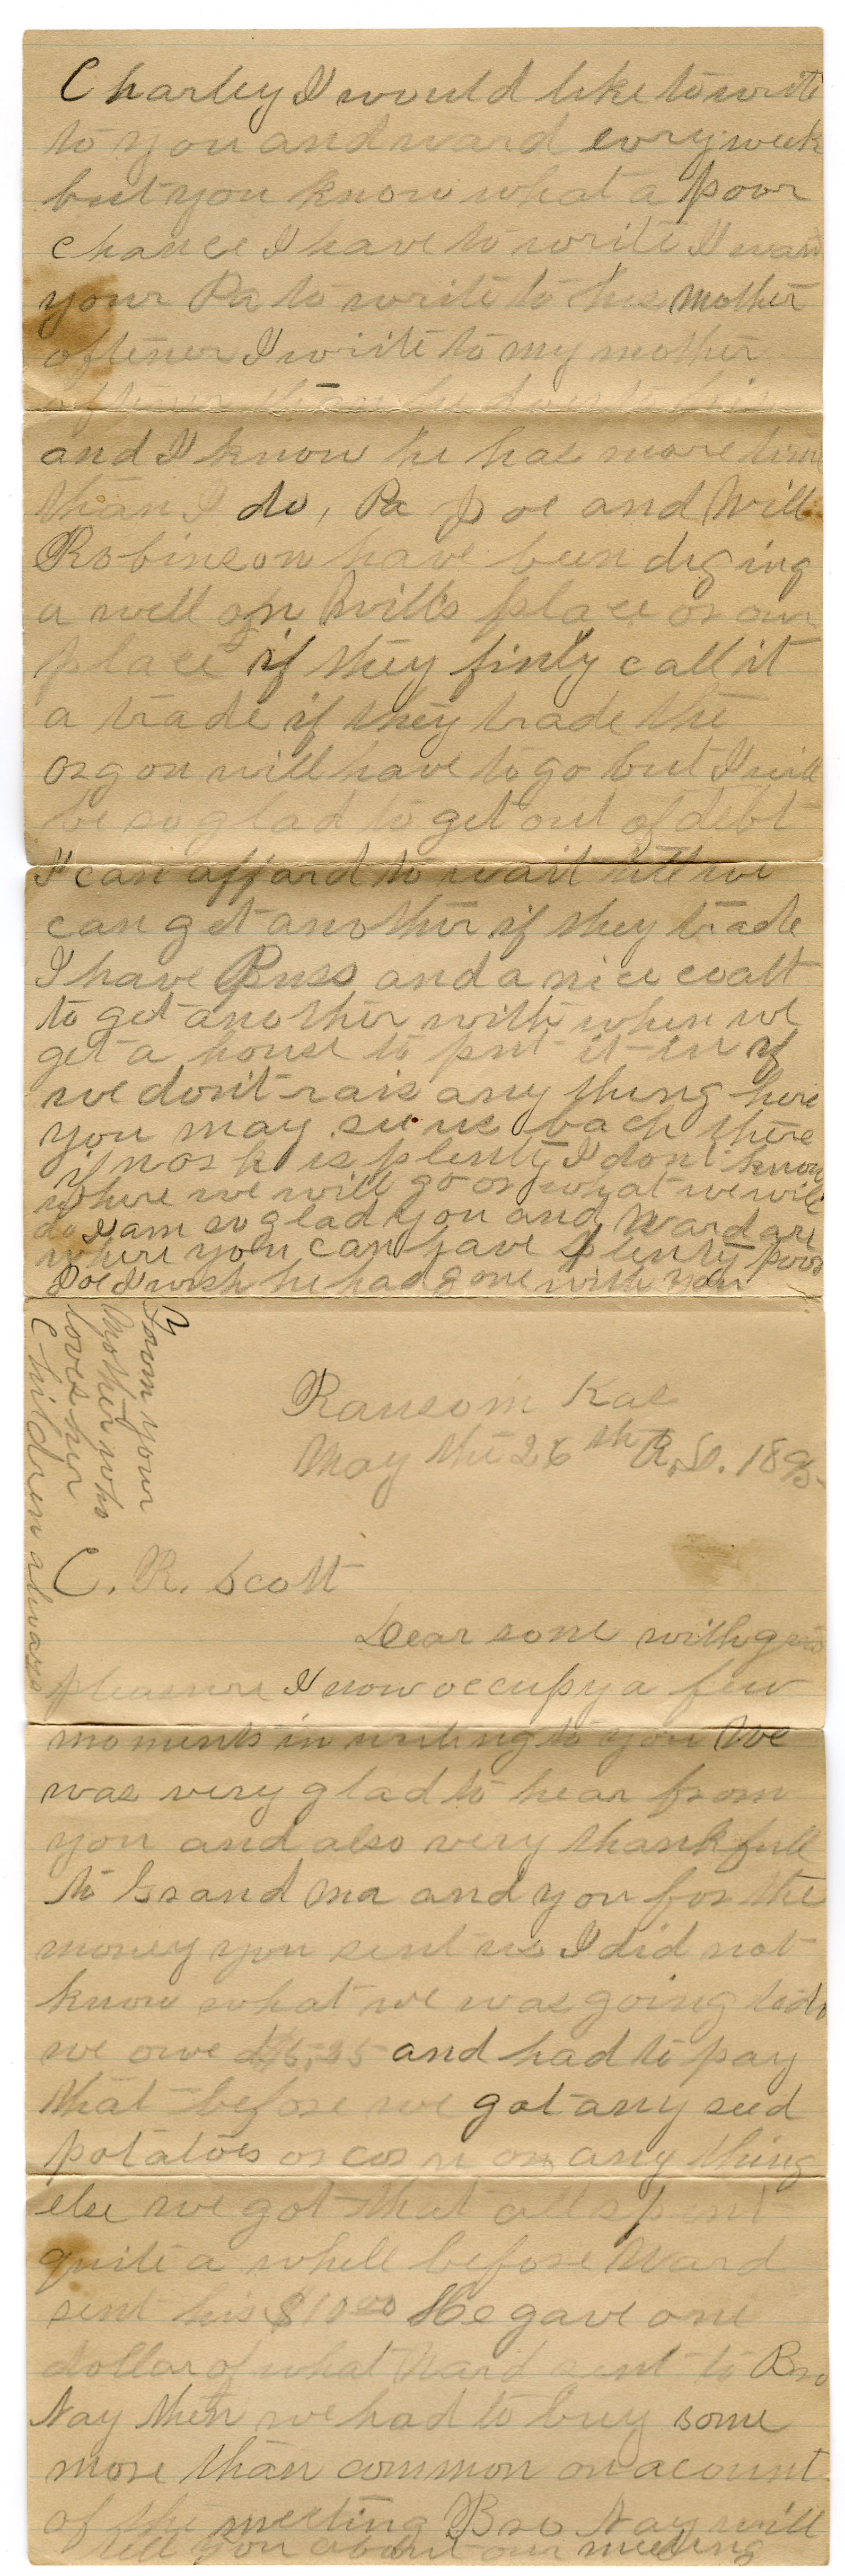 Charley I would like to write
to you and ward evry week
but you know what a poor
chance I have to write I want
your Pa to write to his mother
oftener I write to my mother
oftener than he does to his
and I know he has more time
than I do, Pa Joe and Will
Robinson have been diging
a well on Will's place or our
place if they finly call it
a trade if they trade the
organ will have to go but I will
be so glad to get out of debt
I can affard to wait till we
can get another if they trade
I have Puss and a nice coalt
to get another with when we
get a house to put it in if
we don't rais any thing here
you may see us back there
if work is plenty I don't know
where we will go or what we will
do I am so glad you and Ward are
where you can have plenty poor
Joe I wish he had gone with you
From your
Mother who
loves her
children always
Ransom Kas
May the 26th A.D. 1895
C. R. Scott
Dear sone with great
pleasure I now occupy a few
moments in writing to you We
was very glad to hear from
you and also very thankfull
to Grand ma and you for the
money you sent us I did not
know what we was going to do
we owe and had to pay
that before we got any seed
potatoes or corn or any thing
else we got that all spent
quite a while before Ward
sent his $10.00 He gave one
dollar of what Ward sent to Bro
Nay then we had to buy some
more than common on acount
of the meeting Bro Nay will
tell you about our meeting